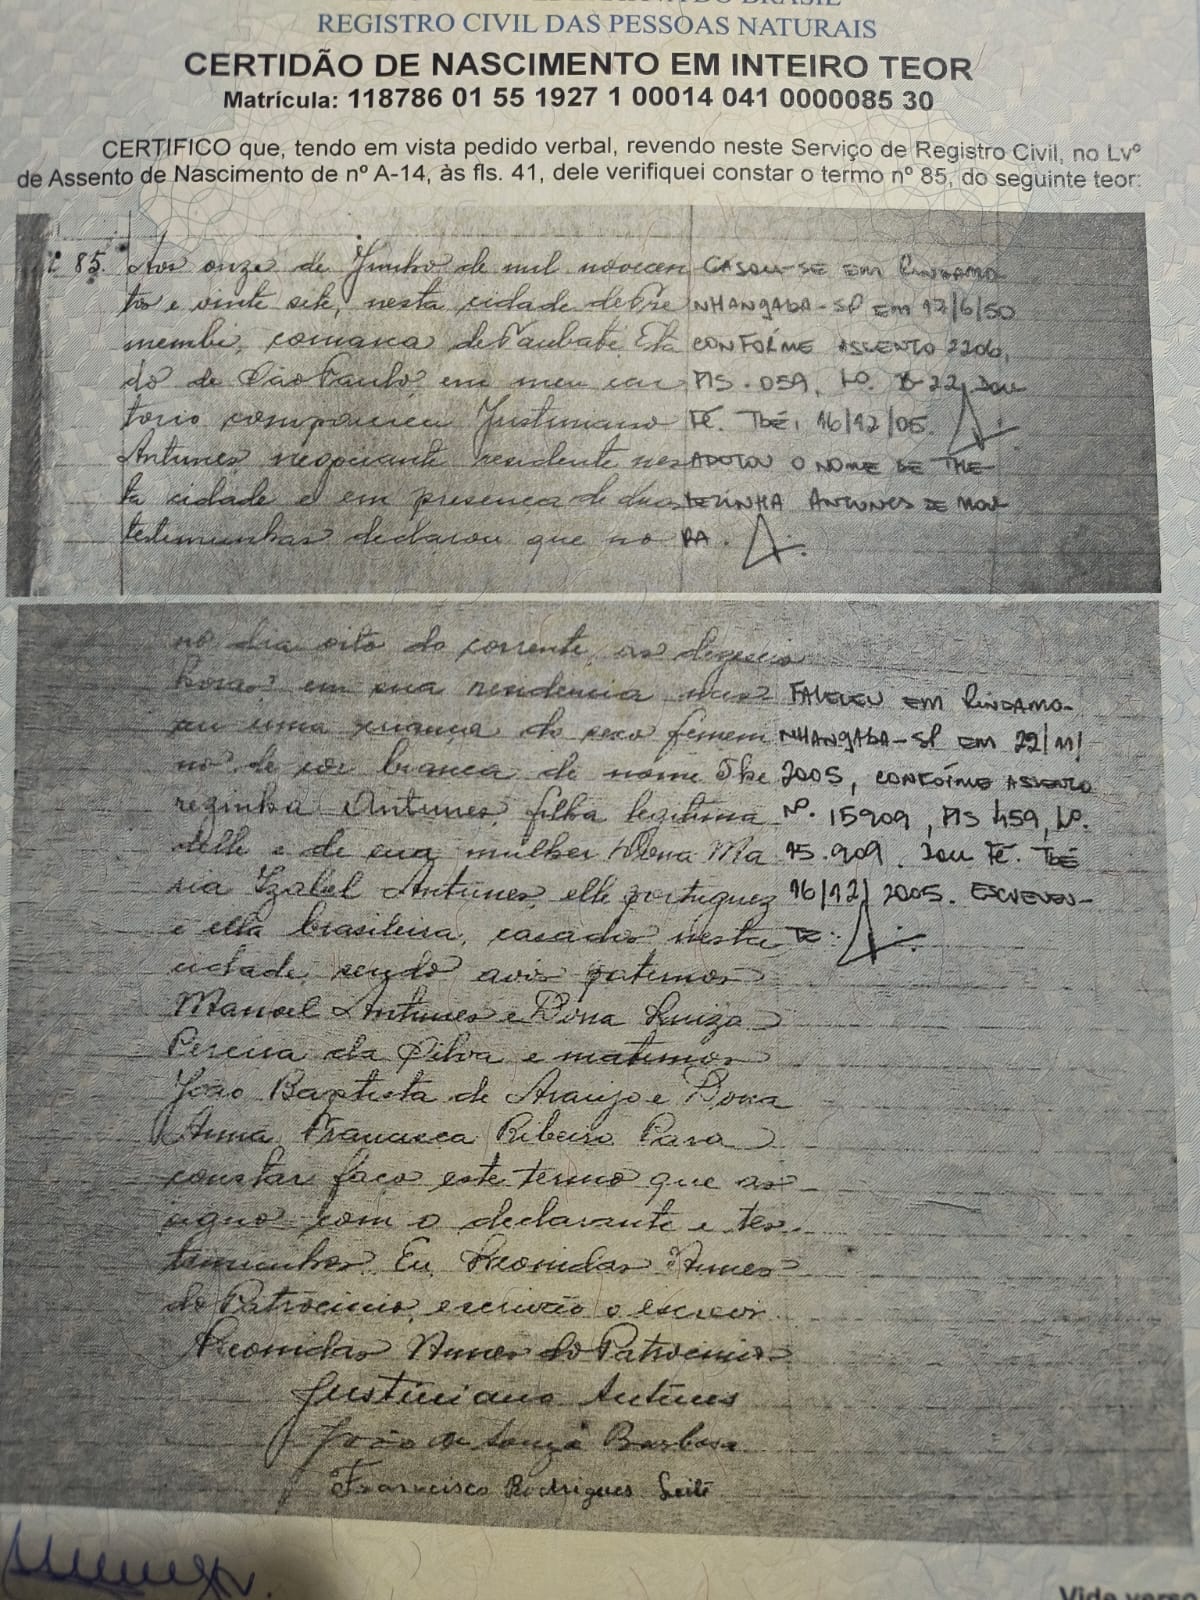 REGISTRO CIVIL DAS PESSOAS NATURAIS
CERTIDÃO DE NASCIMENTO EM INTEIRO TEOR
Matrícula: 118786 01 55 1927 1 00014 041 0000085 30
CERTIFICO que, tendo em vista pedido verbal, revendo neste Serviço de Registro Civil, no Lvº
de Assento de Nascimento de nº A-14, às fls. 41, dele verifiquei constar o termo nº 85, do seguinte teor:
85. Aos onze de Junho de mil novecen
tos e vinte sete, nesta cidade de Tre
membé, comarca de Taubaté, Esta
do de São Paulo em meu car
torio compareceu Justiniano
Antunes negociante residente nes
ta cidade e em presença de duas
testemunhas declarou que no
CASOU-SE EM PINDAMO-
NHANGABA-SP EM 17/6/50
CONFORME ASSENTO 2206,
FLS. 059, Lº. B-22, DOU
FÉ. TBÉ, 16/12/05.
ADOTOU O NOME DE THE-
REZINHA ANTUNES DE MOU-
RA.
no dia oito do corrente, as dezeseis
horas em sua residencia nasc
eu uma criança do sexo femeni
no de cor branca de nome The
rezinha Antunes, filha legitima
delle e de sua mulher Dona Ma
ria Izabel Antunes, elle portuguez
e ella brasileira, casados nesta
cidade, sendo avós paternos
Manoel Antunes e Dona Luiza
Pereira da Silva e maternos
João Baptista de Araujo e Dona
Anna Francisca Ribeiro Para
constar faço este termo que as
signo com o declarante e tes
temunhas. Eu, Leonidas Nunes
do Patrocinio, escrivão o escrevi
Leonidas Nunes do Patrocinio
Justiniano Antunes
João de Souza Barbosa
Francisco Rodrigues Leite
FALECEU EM PINDAMO-
NHANGABA-SP EM 22/11/
2005, CONFORME ASSENTO
Nº. 15909, FLS 459, Lº.
15.909. DOU FÉ. TBÉ
16/12/2005. ESCREVEN-
TE:
Vide verso